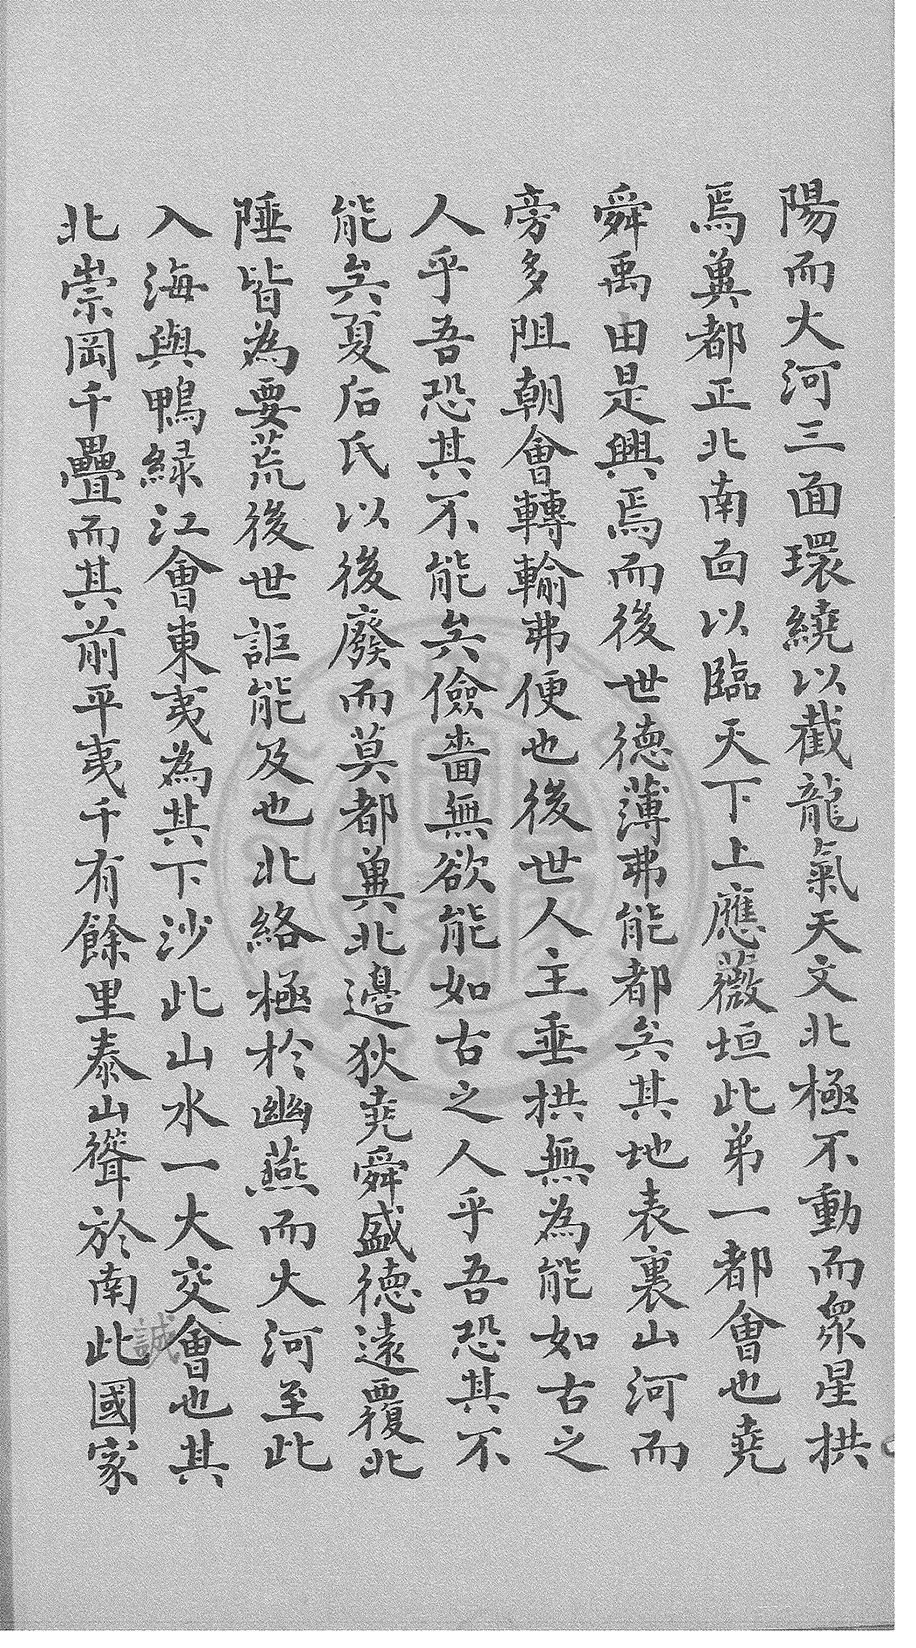 陽而大河三面環繞以截龍氣天文北極不動而眾星拱
焉冀都正北南面以臨天下上應薇垣此弟一都會也堯
舜禹由是興焉而後世德薄弗能都矣其地表裏山河而
旁多阻朝會轉輸弗便也後世人主垂拱無為能如古之
人乎吾恐其不能矣儉嗇無欲能如古之人乎吾恐其不
能矣夏后氏以後廢而莫都冀北邊狄堯舜盛德遠覆北
陲皆為要荒後世詎能及也北絡極於幽燕而大河至此
入海與鴨綠江會東夷為其下沙此山水一大交會也其
北崇岡千疊而其前平夷千有餘里泰山聳於南此國家
誠